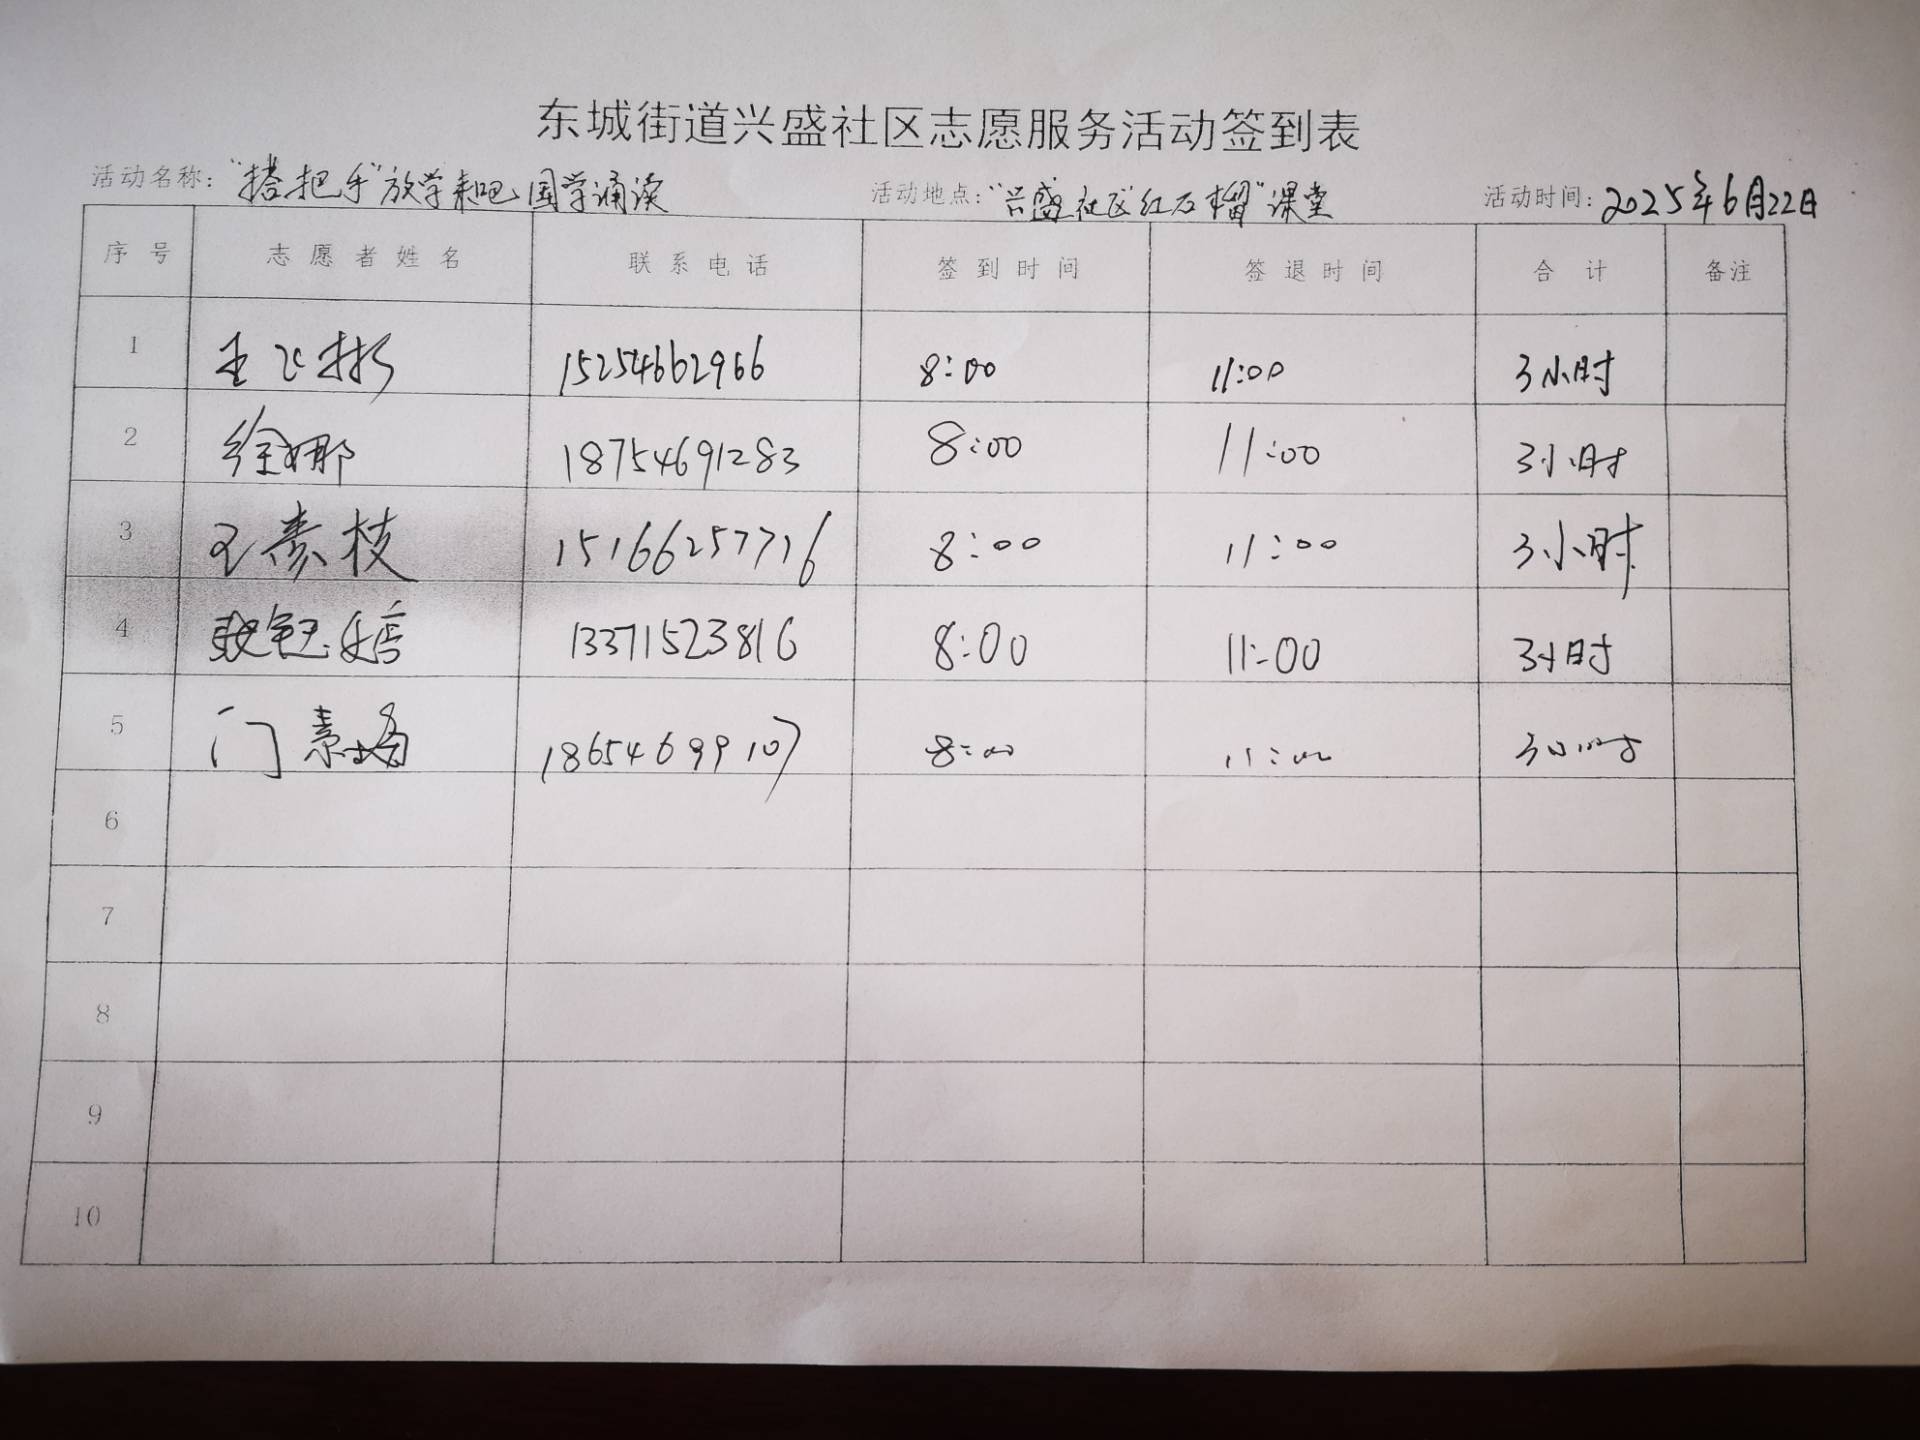 东城街道兴盛社区志愿服务活动签到表
活动名称：“搭把手”放学来吧国学诵读 活动地点：“兴盛社区“红石榴”课堂 活动时间：2025年6月22日
序号 志愿者姓名 联系电话 签到时间 签退时间 合计 备注
1 王飞彬 15254662966 8:00 11:00 3小时
2 徐娜 18754691283 8:00 11:00 3小时
3 王素枝 15166257716 8:00 11:00 3小时
4 13371523816 8:00 11:00 3小时
5 门素梅 18654699107 8:00 11:00 3小时
6
7
8
9
10